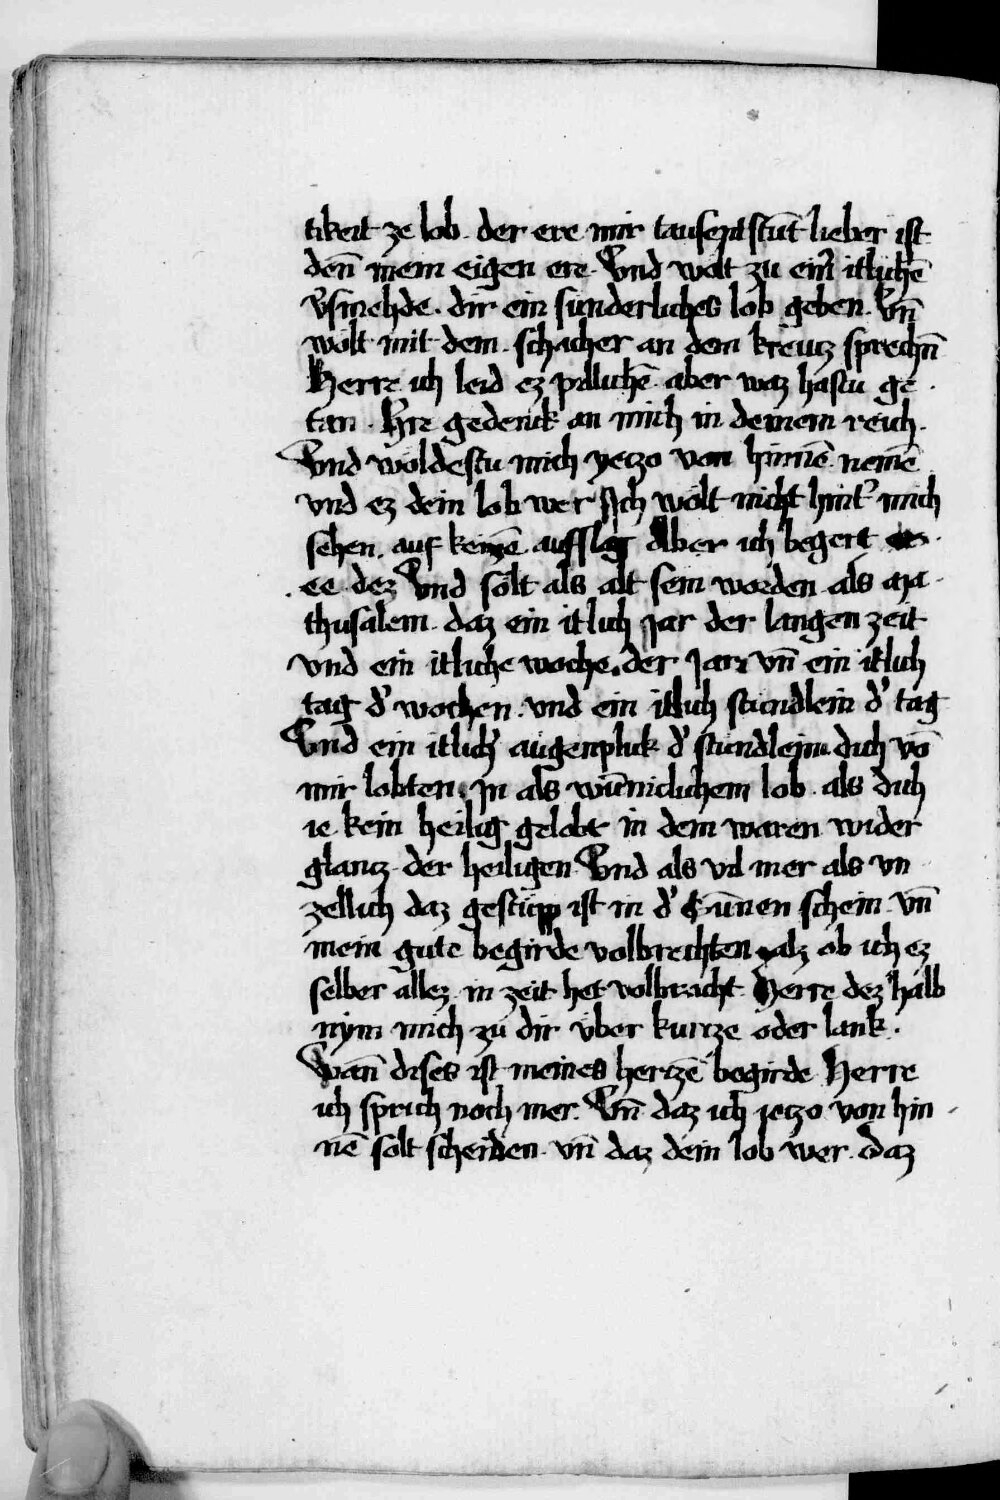 tikeit ze lob. der ere mir tausentstūt lieber ist
den̄ mein eigen ere. Vnd wolt zu ein̓ itlichē
v̓smehde. dir ein sunderliches lob geben. Vn̄
wolt mit dem. schacher an dem kreutz sprechn̄
Herre ich leid ez pillichē aber waz hastu ge
tan. Hre gedenck an mich in deinem reich.
Vnd woldestu mich yeczo von hinnē nemē
vnd ez dein lob wer Ich wolt nicht hint̓ mich
sehen. auf keinē aufslag Aber ich begert
ee dez Vnd solt als alt sein worden als ma
thusalem. daz ein itlich jar der langen zeit
vnd ein itliche woche. der Jar vn̄ ein itlich
tag d̓ wochen. vnd ein itlich stundlein d̓ tag
Vnd ein itlich augenplick d̓ stundlein dich vō
mir lobten. In als wūniclichem lob. als dich
ie kein heilig gelobt in dem waren wider
glantz der heiligen Vnd als vil mer als vn
zellich daz gestüpp ist in d̓ Sūnen schein. vn̄
mein gute begirde volbrechten. alz ob ich ez
selber allez in zeit het volbracht. Herre dez halb
nym mich zu dir über kurcze oder lank.
Wan̄ dises ist meines herczē begirde Herre
ich sprich noch mer. Vn̄ daz ich jeczo von hin
nē solt scheiden. vn̄ daz dein lob wer. daz